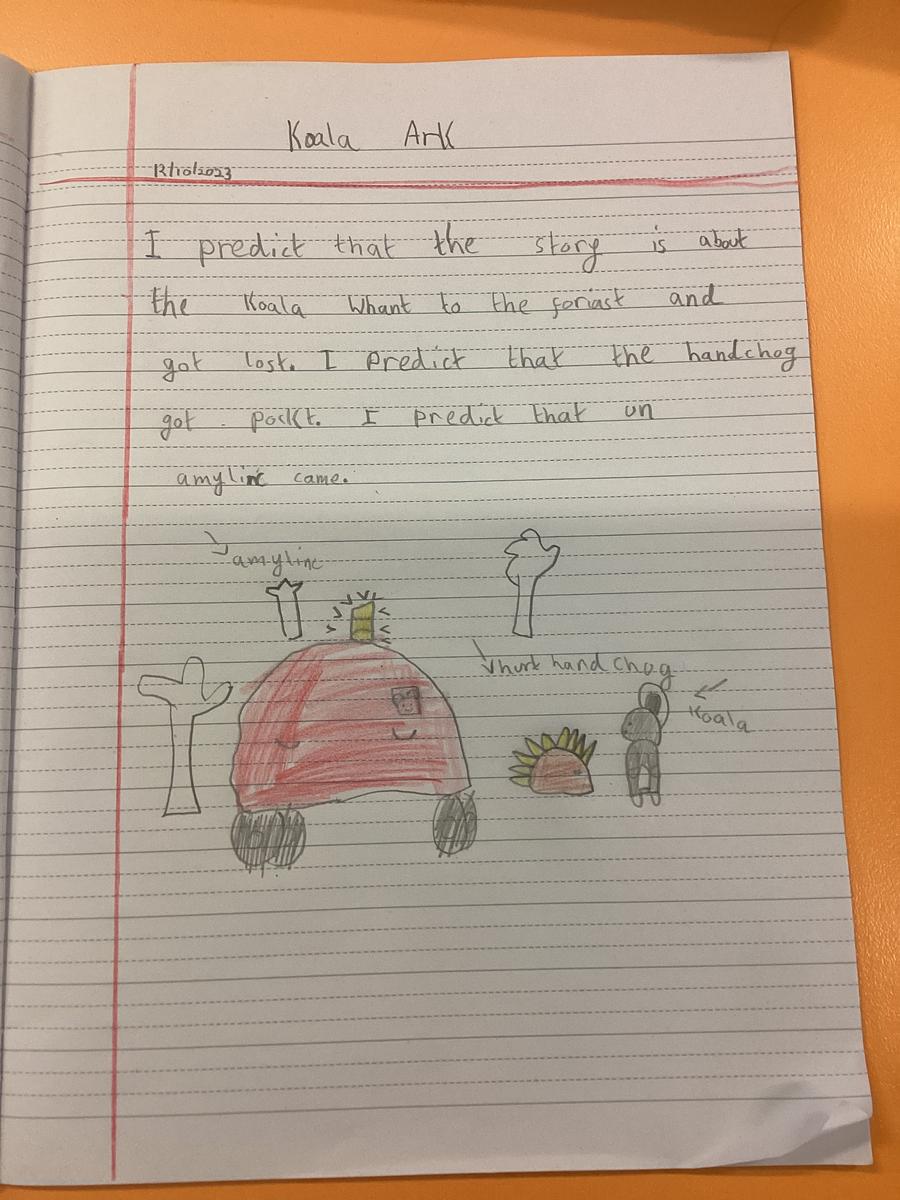 Koala Ark
12/10/2023
I predict that the story is about
the Koala Whant to the foriast and
got lost. I predict that the handchog
got pockt. I predict that un
amylinc came.
amylinc
hurt handchog
Koala